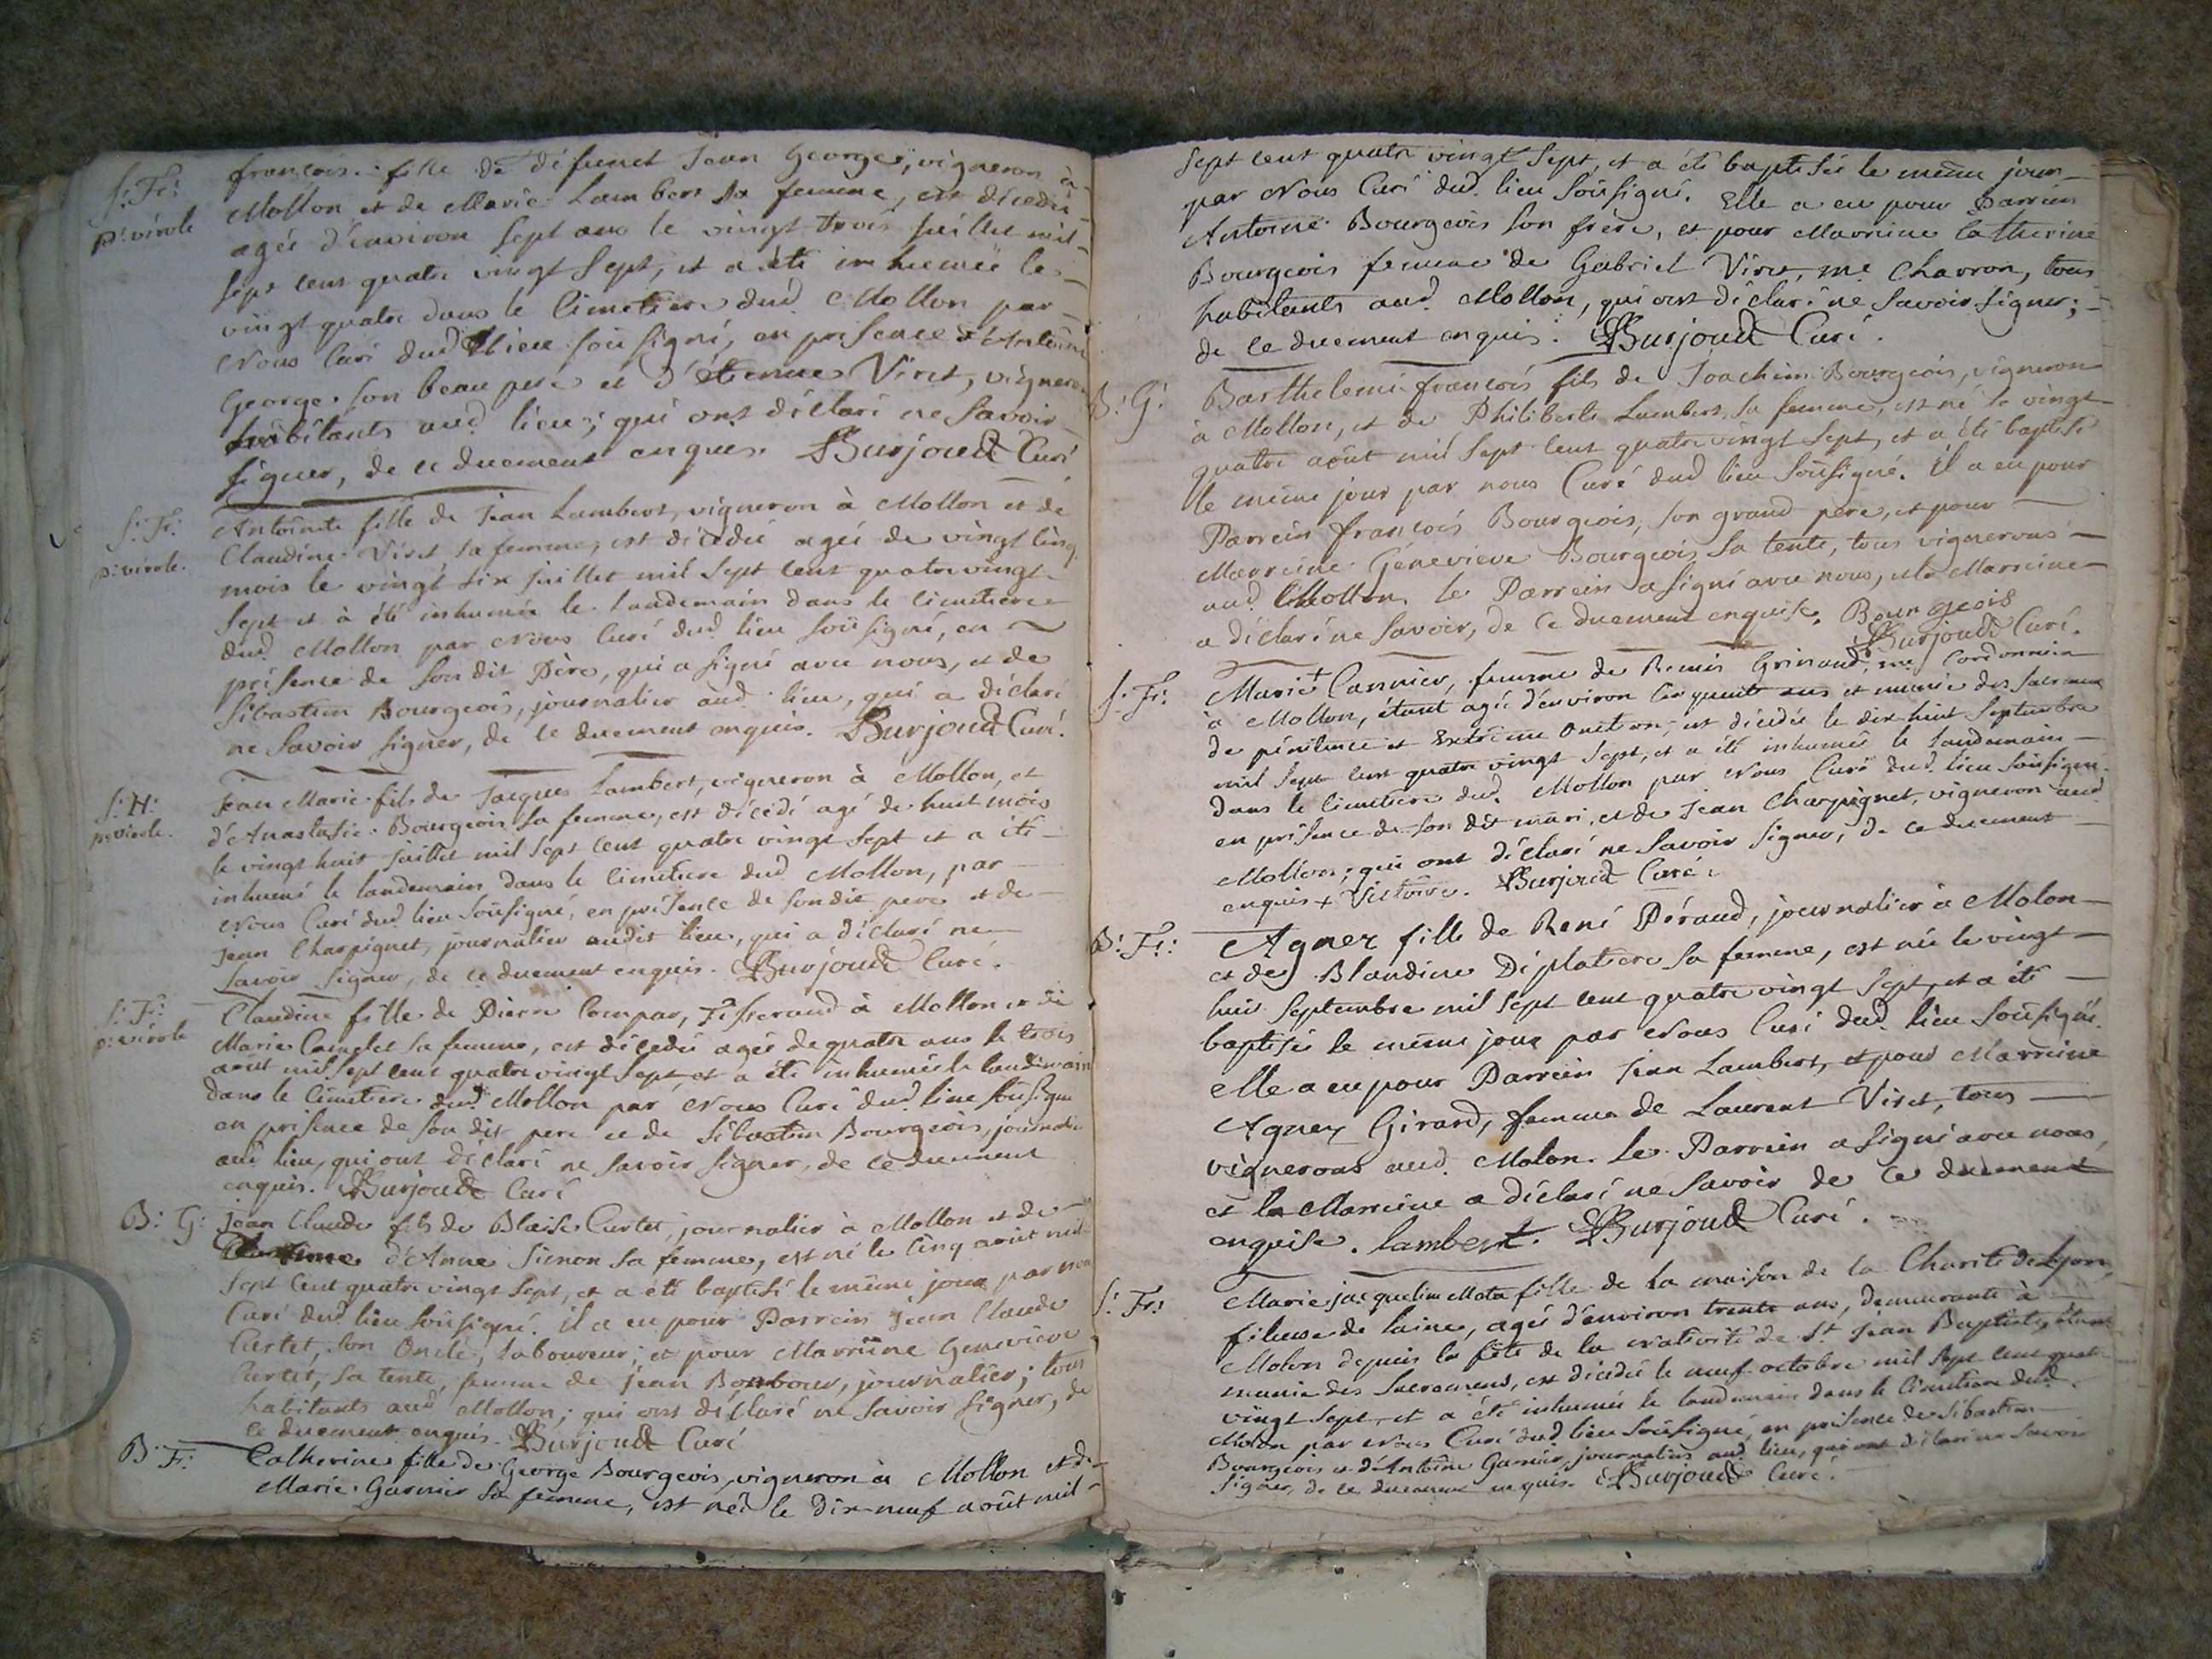 S: Fe:
pte vérole
francoise fille de défunct Jean George, vigneron à
Mollon et de Marie Lambert sa femme, est décédée
agée d'environ sept ans le vingt trois juillet mil
sept cent quatre vingt sept, et a été inhumée le
vingt quatre dans le Cimetiere dud Mollon par
Nous Curé dud lieu soüsigné, en présence d'Antoine
George son beau pere et d'étienne Viret, vignerons
habitants aud lieu; qui ont déclaré ne Savoir
signer, de ce duement enquis. Burjoud Curé
S: Fe:
pte vérole.
Antoinete fille de Jean Lambert, vigneron à Mollon et de
Claudine Viret sa femme, est décédée agée de vingt cinq
mois le vingt six juillet mil sept cent quatre vingt
sept et à été inhumée le landemain dans le Cimetiere
dud Mollon par Nous Curé dud lieu soüsigné, en
présence de son dit Père, qui a signé avec nous, et de
Sibastien Bourgeois, journalier aud lieu, qui a déclaré
ne Savoir signer, de ce duement enquis. Burjoud Curé.
S: H:
pte vérole.
Jean Marie fils de Jacques Lambert, vigneron à Mollon, et
d'Anastasie Bourgeois sa femme, est décédé agé de huit mois
le vingt huit juillet mil sept cent quatre vingt sept et a été
inhumé le landemain dans le Cimetiere dud Mollon, par
Nous Curé dud lieu soüsigné, en présence de son dit pere et de
Jean Charpignet, journalier audit lieu, qui a déclaré ne
Savoir signer, de ce duement enquis. Burjoud Curé.
S: F:
pte vérole
Claudine fille de Pierre Compar, Tisserand à Mollon et de
Marie sa femme, est décédée agée de quatre ans le trois
août mil sept cent quatre vingt sept, et a été inhumée le landemain
dans le Cimetiere dud Mollon par Nous Curé dud lieu soüsigné
en présence de son dit pere et de Sibastien Bourgeois, journalier
aud lieu, qui ont déclaré ne savoir signer, de ce duement
enquis. Burjoud Curé
B: G:
Jean Claude fils de Blaise Curtet, journalier à Mollon et de
d'Anne Simon sa femme, est né le cinq août mil
sept cent quatre vingt sept, et a été baptisé le même jour par nous
Curé dud lieu soüsigné. il a eu pour Parrein Jean Claude
Curtet, son Oncle, laboureur; et pour Marreine Genevieve
Curtet, sa tente, femme de Jean Bombour, journalier; tous
habitants aud Mollon; qui ont déclaré ne Savoir signer, de
ce duement enquis. Burjoud Curé
B: F:
Catherine fille de George Bourgeois, vigneron à Mollon et de
Marie Garnier sa femme, est née le dix-neuf août mil
sept cent quatre vingt sept, et a été baptisée le même jour
par Nous Curé dud. lieu soüsigné. Elle a eu pour Parrein
Antoine Bourgeois son frère, et pour Marreine Catherine
Bourgeois femme de Gabriel Viret, me Charron, tous
habitants aud. Mollon, qui ont déclaré ne Savoir signer;
de ce duement enquis. Burjoud Curé.
B: G:
Barthelemi francois fils de Joachim Bourgeois, vigneron
à Mollon, et de Philiberte Lambert, sa femme, est né le vingt
quatre août mil sept cent quatre vingt sept, et a été baptisé
le même jour par nous Curé dud lieu soüsigné. il a eu pour
Parrein francois Bourgeois, son grand pere, et pour
Marreine Génevieve Bourgeois sa tente, tous vignerons
aud. Mollon, le Parrein a signé avec nous, et la Marreine
a déclaré ne savoir, de ce duement enquise. Bourgeois
Burjoud Curé.
S: Fe:
Marie+ Cannier, femme de Remis Grinand, me Cordonnier
à Mollon, étant agée d'environ cinquante ans et munie des sacremens
de pénitence et Extrême Onction, est décédée le dix-huit Septembre
mil sept cent quatre vingt sept, et a été inhumée le landemain
dans le Cimetiere dud. Mollon par Nous Curé dud. lieu soüsigné
en présence de son dit mari, et de Jean Charpignet, vigneron aud
Mollon; qui ont déclaré ne Savoir signer, de ce duement
enquis + Victoire. Burjoud Curé.
B: Fe:
Agnez fille de René Péraud, journalier à Molon
et de Blandine Déplatiere sa femme, est née le vingt
huit Septembre mil sept cent quatre vingt sept, et a été
baptisée le même jour par Nous Curé dud. lieu soüsigné.
elle a eu pour Parrein Jean Lambert, et pour Marreine
Agnez Girard, femme de Laurent Viret, tous
vignerons aud. Molon. Le Parrein a signé avec nous,
et la Marreine a déclaré ne Savoir de ce duement
enquise. lambert. Burjoud Curé.
S: Fe:
Marie jacqueline Mata fille de la maison de la Charité de Lyon,
fileuse de laine, agée d'environ trente ans, demeurante à
Molon depuis la fête de la Nativité de St Jean Baptiste, étant
munie des Sacremens, est décédée le neuf octobre mil sept cent quatre
vingt sept, et a été inhumée le landemain dans le Cimetiere dud.
Molon par Nous Curé dud lieu soüsigné, en présence de Sibastien
Bourgeois et d'Antoine Garnier, journaliers aud. lieu, qui ont déclaré ne Savoir
signer, de ce duement enquis. Burjoud Curé.